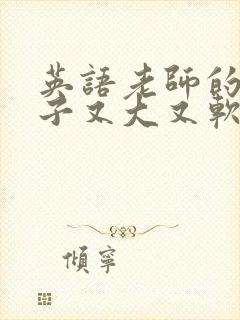 英語老師的
子又大又軟
傾寧